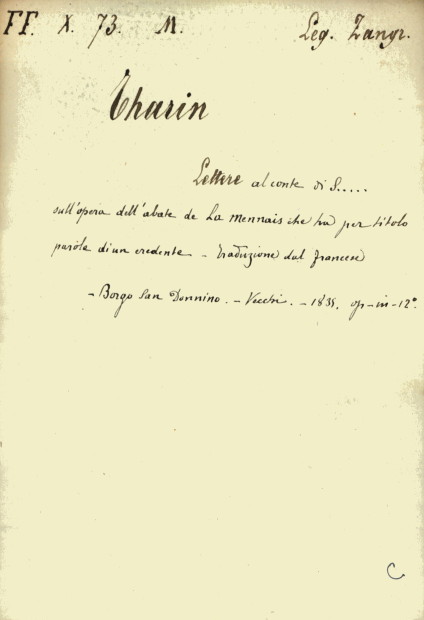 FF. X. 73. M. Leg. Zangr.
Tharin
Lettere al conte di S.....
sull'opera dell'abate de La Mennais che ha per titolo
parole di un credente - traduzione dal francese
- Borgo San Donnino. - Vecchi. - 1835. op-in-12°
C